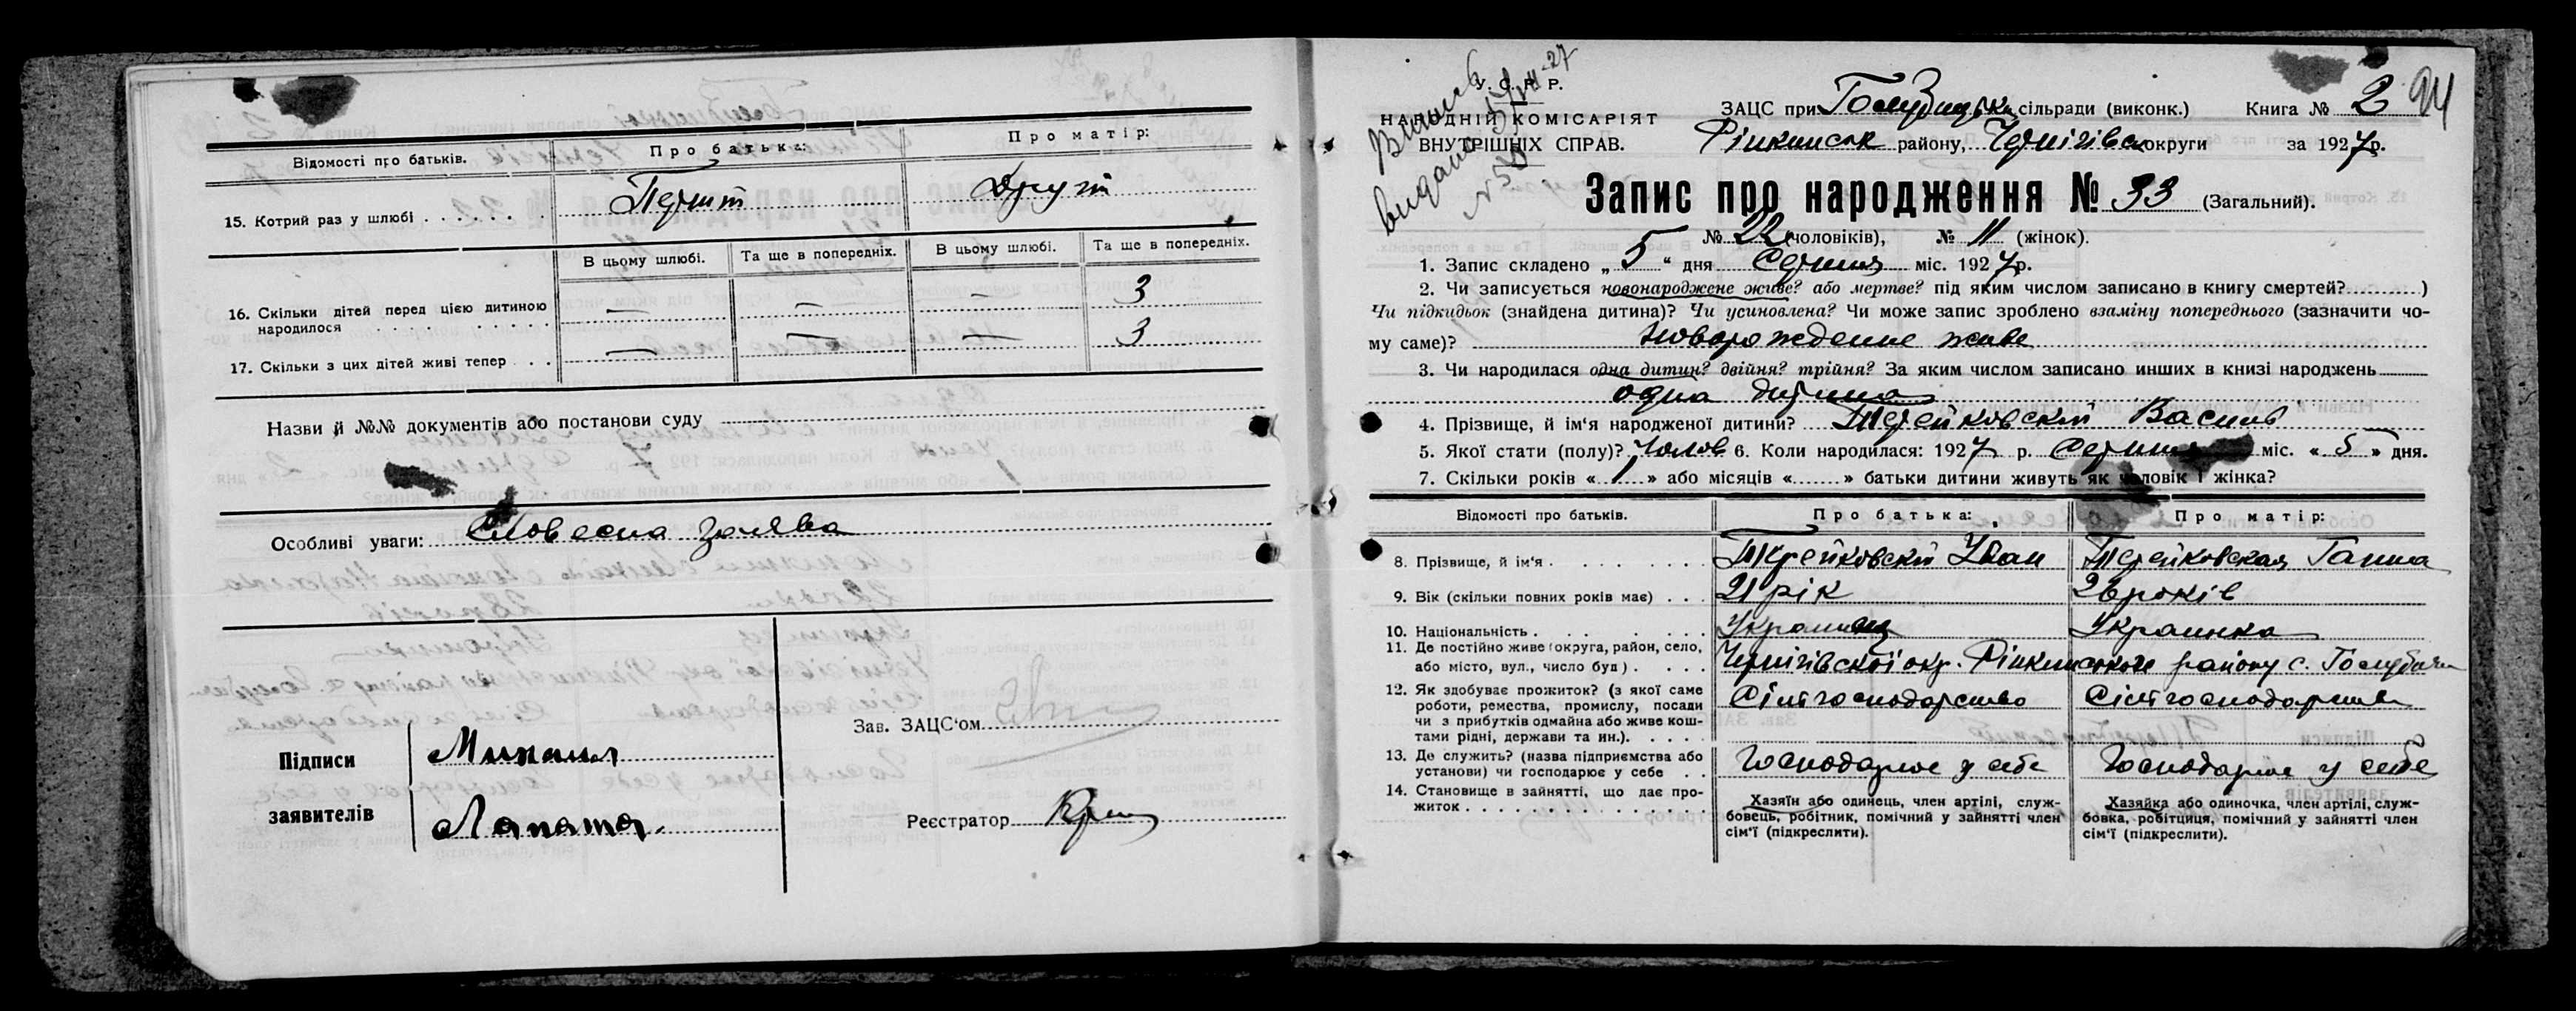 Відомості про батьків.
Про батька:
Про матір:
15. Котрий раз у шлюбі
Перший
Другий
В цьому шлюбі.
Та ще в попередніх.
В цьому шлюбі.
Та ще в попередніх.
16. Скільки дітей перед цією дитиною
народилося
— — — 3
17. Скільки з цих дітей живі тепер
— — — 3
Назви й №№ документів або постанови суду
Особливі уваги: Словесна заява
Підписи
заявителів
Лапата.
Зав. ЗАЦС'ом
Реєстратор
Виписъ
видано
У. С. Р. Р.
НАРОДНІЙ КОМІСАРІЯТ
ВНУТРІШНІХ СПРАВ.
ЗАЦС при Голубицька сільради (виконк.)
Книга № 2
94
Ріпкинськ району, Чернігівск округи за 1927р.
Запис про народження № 33 (Загальний).
№ 22 (чоловіків), № 11 (жінок).
1. Запис складено „5“ дня Серпня міс. 1927р.
2. Чи записується новонароджене живе? або мертве? під яким числом записано в книгу смертей? )
Чи підкидьок (знайдена дитина)? Чи усиновлена? Чи може запис зроблено взаміну попереднього (зазначити чо-
му саме)? новорождене живе
3. Чи народилася одна дитин? двійня? трійня? За яким числом записано инших в книзі народжень
одна дитина
4. Прізвище, й ім'я народженої дитини? Терейковскій Василь
5. Якої стати (полу)? Чолов 6. Коли народилася: 1927 р. Серпня міс. «5» дня.
7. Скільки років «1» або місяців « » батьки дитини живуть як чоловік і жінка?
Відомості про батьків.
Про батька:
Про матір:
8. Прізвище, й ім'я
Терейковскій Іван
Терейковская Ганна
9. Вік (скільки повних років має)
21 рік
26 років
10. Національність
Украинец
Украинка
11. Де постійно живе (округа, район, село,
або місто, вул., число буд)
Чернігівскої окр. Ріпкинского району с. Голубичи
12. Як здобуває прожиток? (з якої саме
роботи, ремества, промислу, посади
чи з прибутків одмайна або живе кош-
тами рідні, держави та ин.).
Сільгосподарство
Сільгосподарство
13. Де служить? (назва підприємства або
установи) чи господарює у себе
Господарює у себе
Господарює у себе
14. Становище в зайнятті, що дає про-
житок
Хазяїн або одинець, член артілі, служ-
бовець, робітник, помічний у зайнятті член
сім'ї (підкреслити).
Хазяйка або одиночка, член артілі, служ-
бовка, робітциця, помічний у зайнятті член
сім'ї (підкреслити).